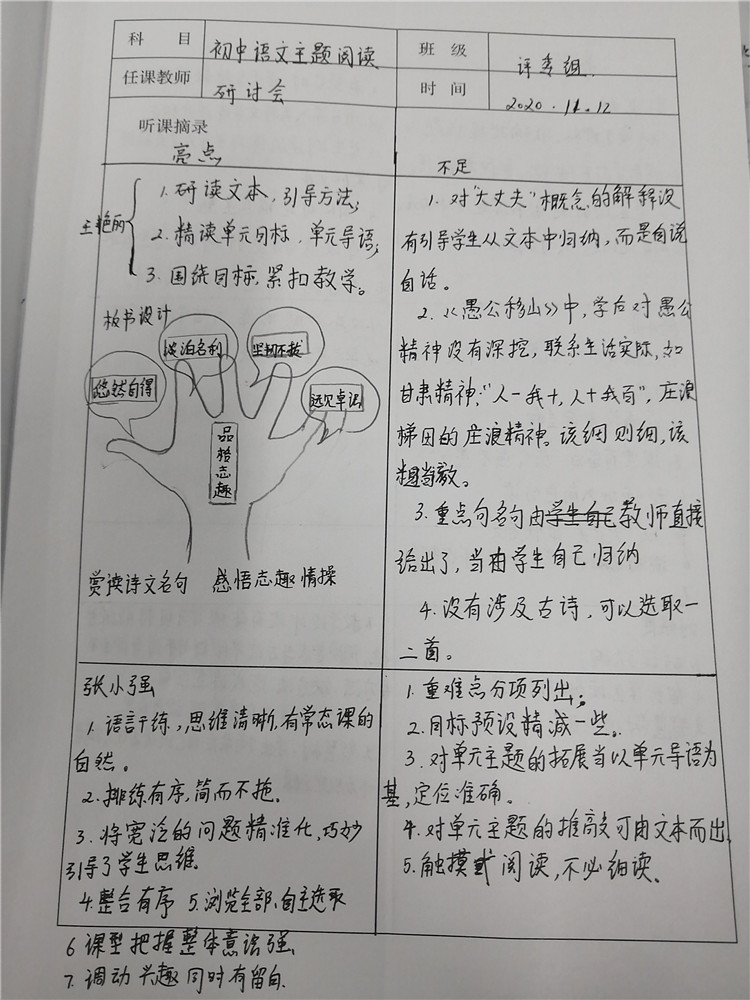 科 目 初中语文主题阅读 班 级 评委组.
任课教师 研讨会 时 间 2020.11.12
听课摘录
亮点
王艳丽
1. 研读文本，引导方法；
2. 精读单元目标，单元导语；
3. 围绕目标，紧扣教学。
板书设计
悠然自得
淡泊名利
坚韧不拔
远见卓识
品格志趣
赏读诗文名句 感悟志趣情操
不足
1. 对“大丈夫”概念的解释没
有引导学生从文本中归纳，而是自说
自话。
2.《愚公移山》中，学后对愚公
精神没有深挖，联系生活实际，如
甘肃精神：“人一我十，人十我百”，庄浪
梯田的庄浪精神。该细则细，该
粗当教。
3. 重点句名句由学生自己教师直接
给出了，当由学生自己归纳
4. 没有涉及古诗，可以选取一
二首。
张小强
1. 语言干练，思维清晰，有常态课的
自然。
2. 排练有序，简而不拖。
3. 将宽泛的问题精准化，巧妙
引导了学生思维。
4. 整合有序 5. 浏览全部，自主选取
6 课型把握整体意识强.
7. 调动兴趣同时有留白.
1. 重难点分项列出；
2. 目标预设精减一些。
3. 对单元主题的拓展当以单元导语为
基，定位准确。
4. 对单元主题的推敲可由文本而出，
5. 触摸式阅读，不必细读。